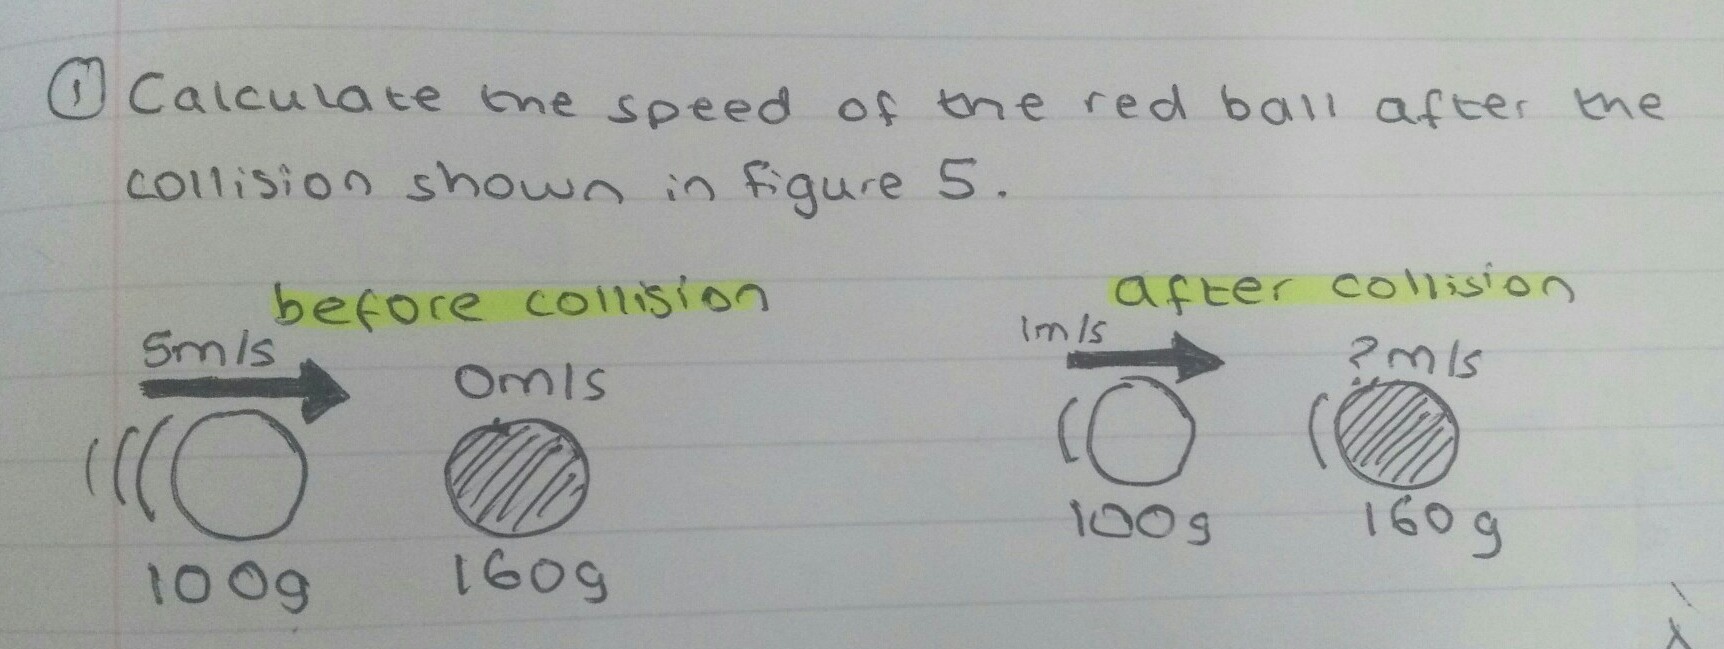 ① Calculate the speed of the red ball after the
collision shown in figure 5.
before collision
after collision
5m/s
0m/s
1m/s
?m/s
100g
160g
100g
160g